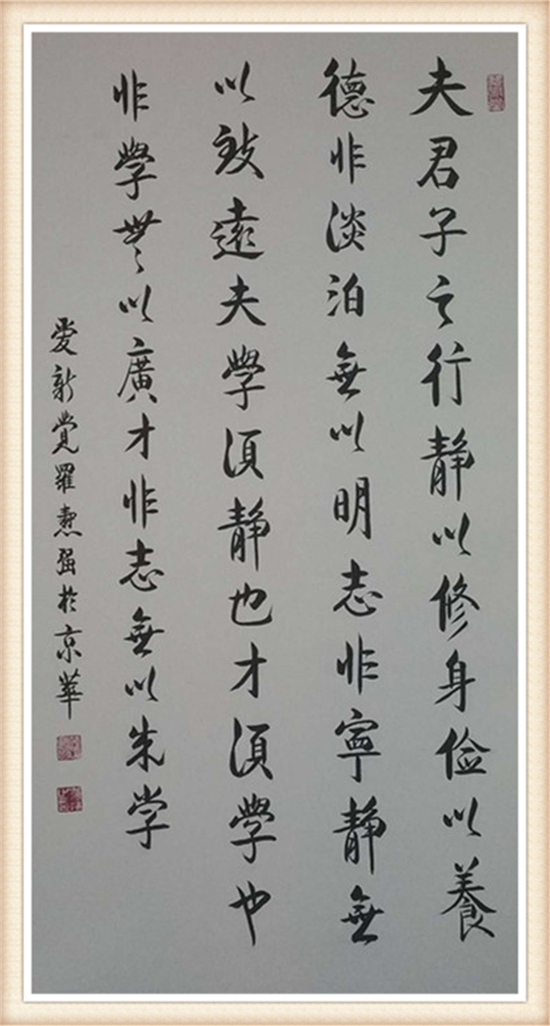 夫君子之行静以修身俭以養
德非淡泊無以明志非寧静無
以致遠夫學須静也才須學也
非學無以廣才非志無以成学
愛新覺羅强於京華